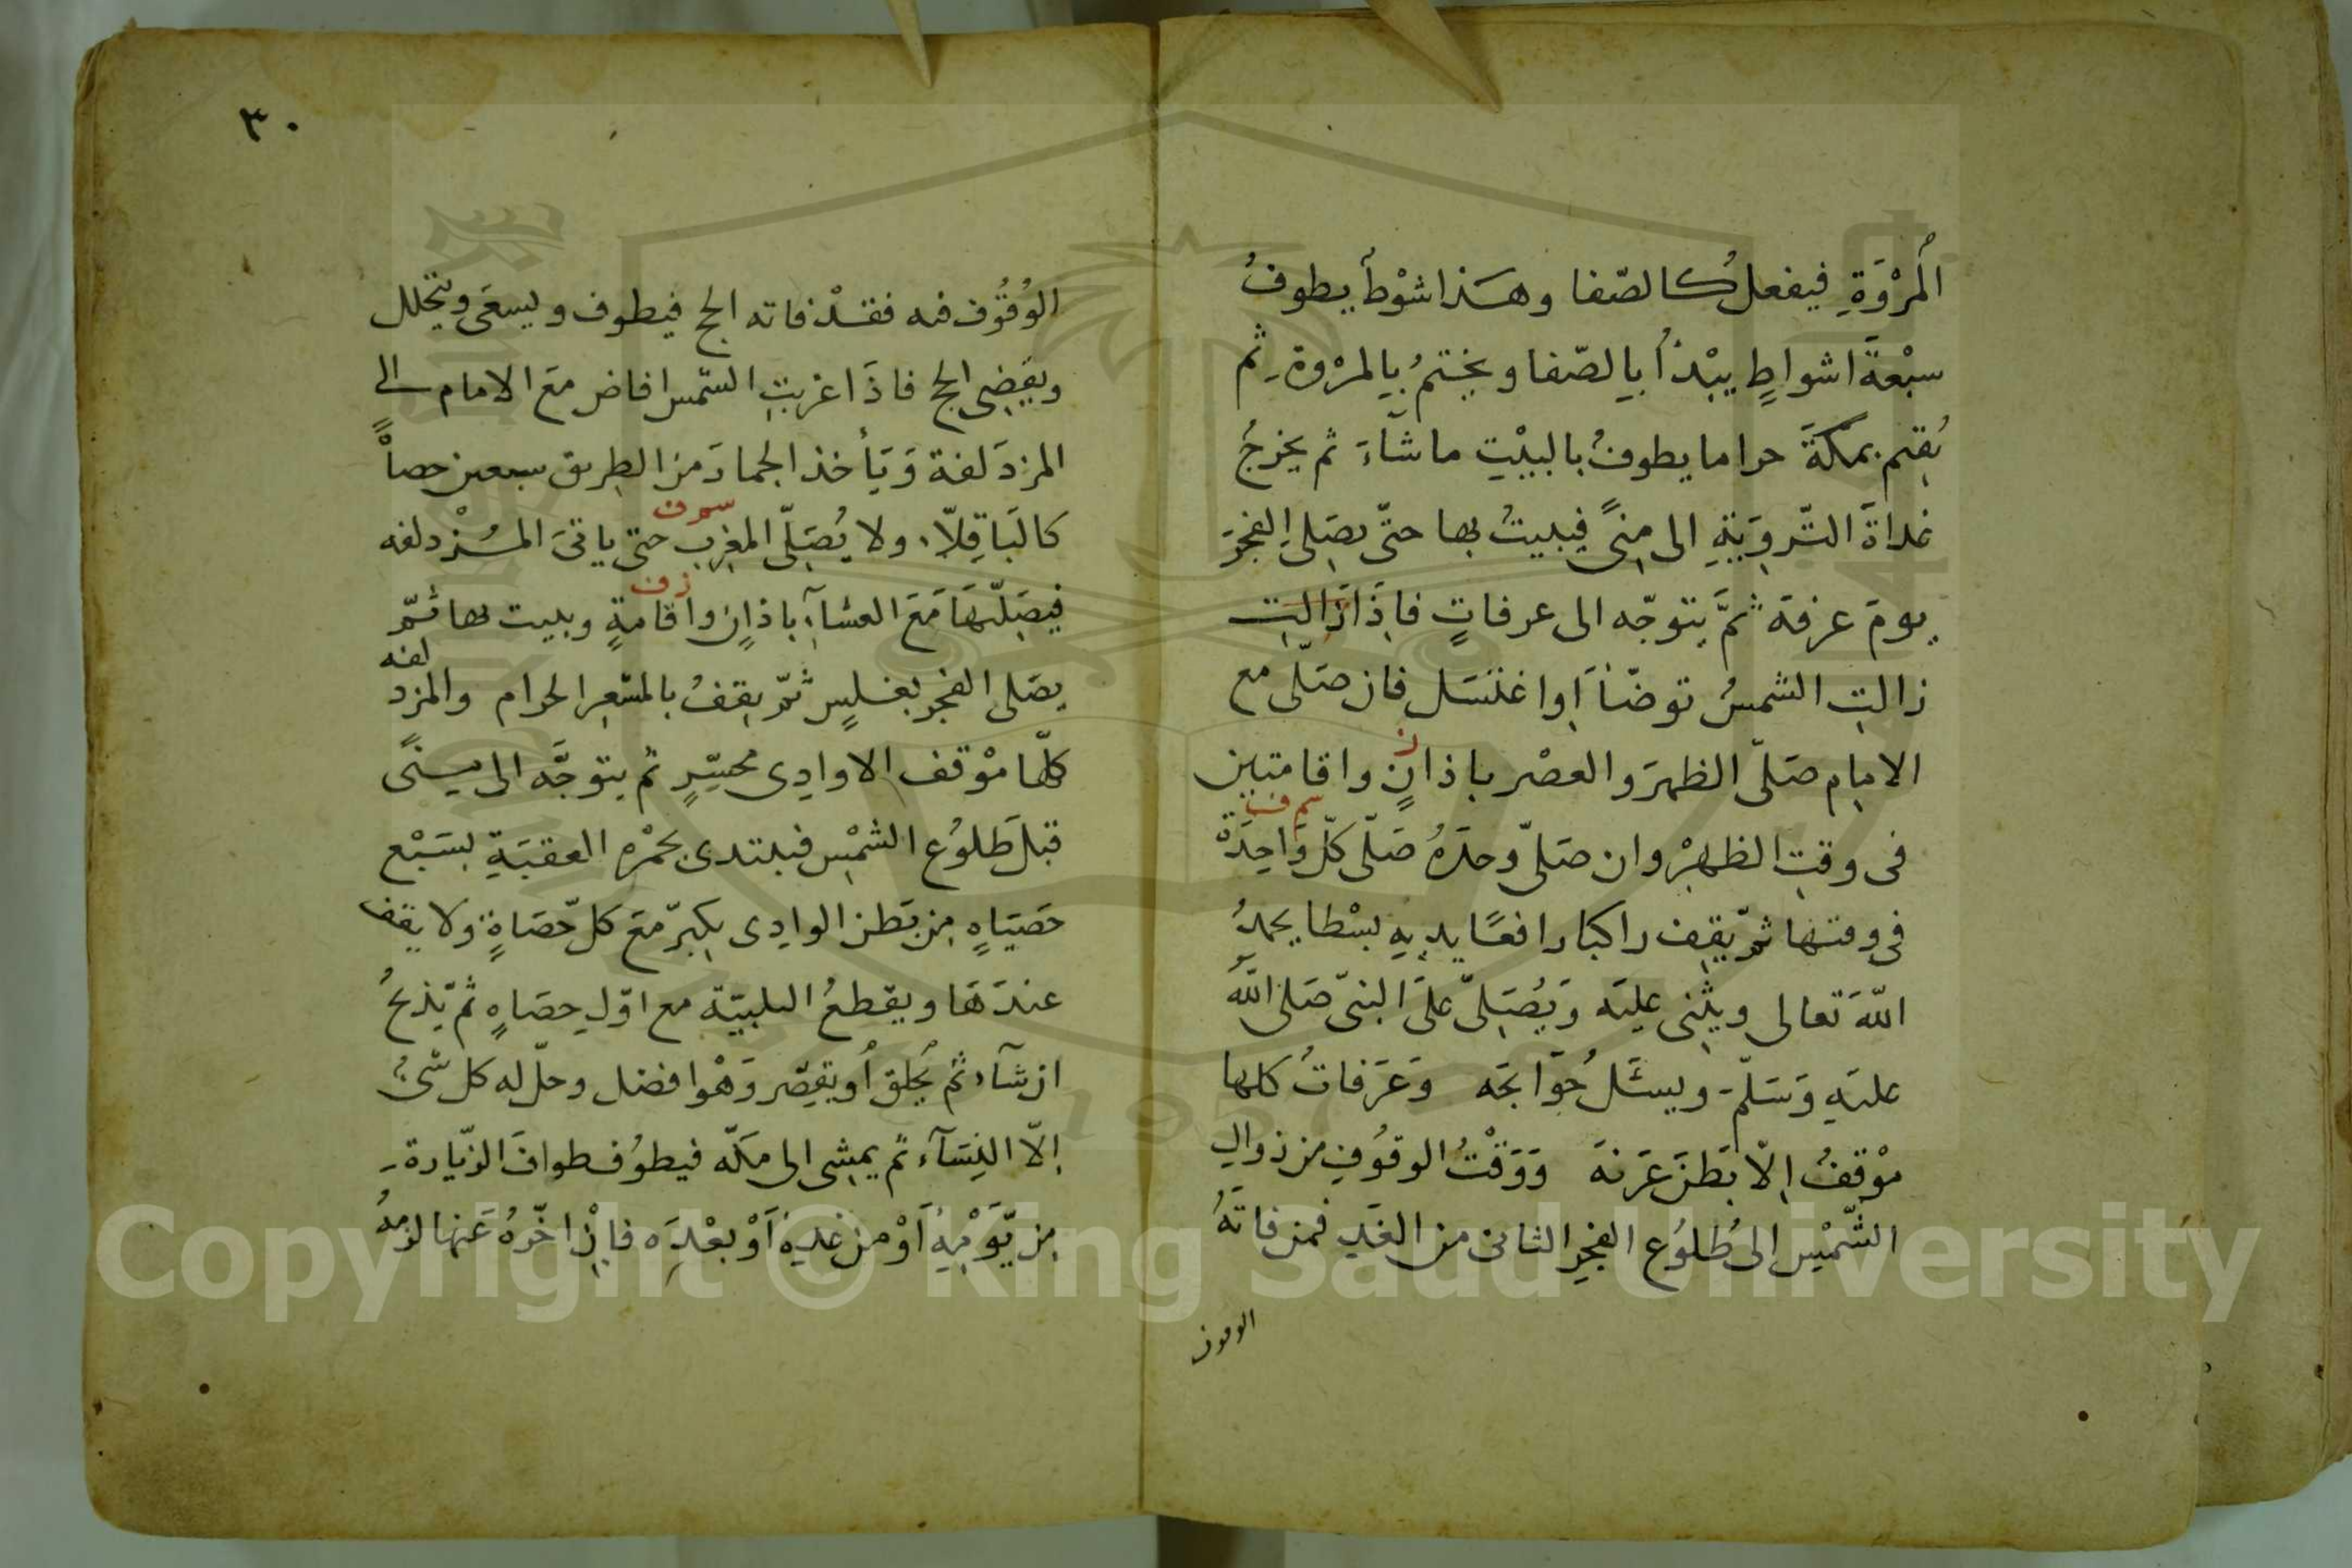 المروة فيفعل كالصفا وهذا شوط يطوف
سبعة اشواط يبدأ بالصفا ويختم بالمروة ثم
يقيم بمكة حراما يطوف بالبيت ما شاء ثم يخرج
غداة التروية الى منى فيبيت بها حتى يصلى الفجر
يوم عرفة ثم يتوجه الى عرفات فاذا زالت
زالت الشمس توضأ او اغتسل فان صلى مع
الامام صلى الظهر والعصر باذان واقامتين
ز
فى وقت الظهر وان صلى وحده صلى كل واحدة
سم ف
فى وقتها ثم يقف راكبا رافعا يديه بسطا يحمد
الله تعالى ويثنى عليه ويصلى على النبى صلى الله
عليه وسلم ويسئل حوايجه وعرفات كلها
موقف الا بطن عرنة ووقت الوقوف من زوال
الشمس الى طلوع الفجر الثانى من الغد فمن فاته
الوقوف
٣٠
الوقوف فيه فقد فاته الحج فيطوف ويسعى ويتحلل
ويقضى الحج فاذا غربت الشمس افاض مع الامام الى
المزدلفة ويأخذ الجمار من الطريق سبعين حصاة
كالباقلاء ولا يصلى المغرب حتى ياتى المزدلفه
سم ف
فيصليها مع العشاء باذان واقامة ويبيت بها ثم
ز ف
يصلى الفجر بغلس ثم يقف بالمشعر الحرام والمزدلفه
كلها موقف الا وادى محسر ثم يتوجه الى منى
قبل طلوع الشمس فيبتدى بجمره العقبة بسبع
حصيات من بطن الوادى يكبر مع كل حصاة ولا يقف
عندها ويقطع التلبية مع اول حصاه ثم يذبح
ان شاء ثم يحلق أو يقصر وهو افضل وحل له كل شئ
الا النساء ثم يمشى الى مكه فيطوف طواف الزيارة
من يومه أو من غده أو بعده فان اخره عنها لزمه
Copyright © King Saud University
1957